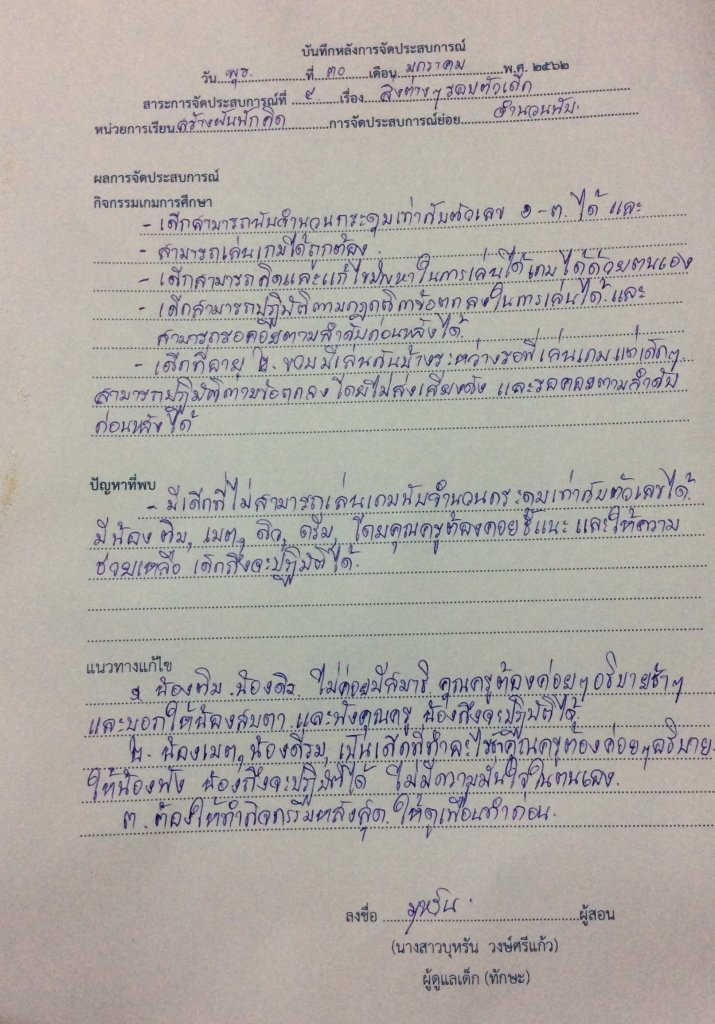 บันทึกหลังการจัดประสบการณ์
วัน พุธ ที่ ๓๐ เดือน มกราคม พ.ศ. ๒๕๖๒
สาระการจัดประสบการณ์ที่ ๙ เรื่อง สิ่งต่างๆรอบตัวเด็ก
หน่วยการเรียน สร้างฝันนักคิด การจัดประสบการณ์ย่อย จำนวนนับ
ผลการจัดประสบการณ์
กิจกรรมเกมการศึกษา
- เด็กสามารถนับจำนวนกระดุมเท่ากับตัวเลข ๑-๓ ได้ และ
- สามารถเล่นเกมได้ถูกต้อง
- เด็กสามารถคิดและแก้ไขปัญหาในการเล่นได้เกมได้ด้วยตนเอง
- เด็กสามารถปฏิบัติตามกฎกติกาข้อตกลงในการเล่นได้ และ
สามารถรอคอยตามลำดับก่อนหลังได้
- เด็กที่อายุ ๒ ขวบมีเล่นกันบ้างระหว่างรอที่เล่นเกม แต่เด็กๆ
สามารถปฏิบัติตามข้อตกลง โดยไม่ส่งเสียงดัง และรอคอยตามลำดับ
ก่อนหลังได้
ปัญหาที่พบ
- มีเด็กที่ไม่สามารถเล่นเกมนับจำนวนกระดุมเท่ากับตัวเลขได้
มีน้อง ติม, เมต, ดิว, ดรีม, โดยคุณครูต้องคอยชี้แนะ และให้ความ
ช่วยเหลือ เด็กถึงจะปฏิบัติได้
แนวทางแก้ไข
๑ น้องติม น้องดิว ไม่ค่อยมีสมาธิ คุณครูต้องค่อยๆอธิบายช้าๆ
และบอกให้น้องสบตา และฟังคุณครู น้องถึงจะปฏิบัติได้
๒. น้องเมต, น้องดรีม, เป็นเด็กที่ทำอะไรช้าคุณครูต้องค่อยๆอธิบาย
ให้น้องฟัง น้องถึงจะปฏิบัติได้ ไม่มีความมั่นใจในตนเอง
๓. ต้องให้ทำกิจกรรมหลังสุด ให้ดูเพื่อนทำก่อน
ลงชื่อ บุหรัน ผู้สอน
(นางสาวบุหรัน วงษ์ศรีแก้ว)
ผู้ดูแลเด็ก (ทักษะ)